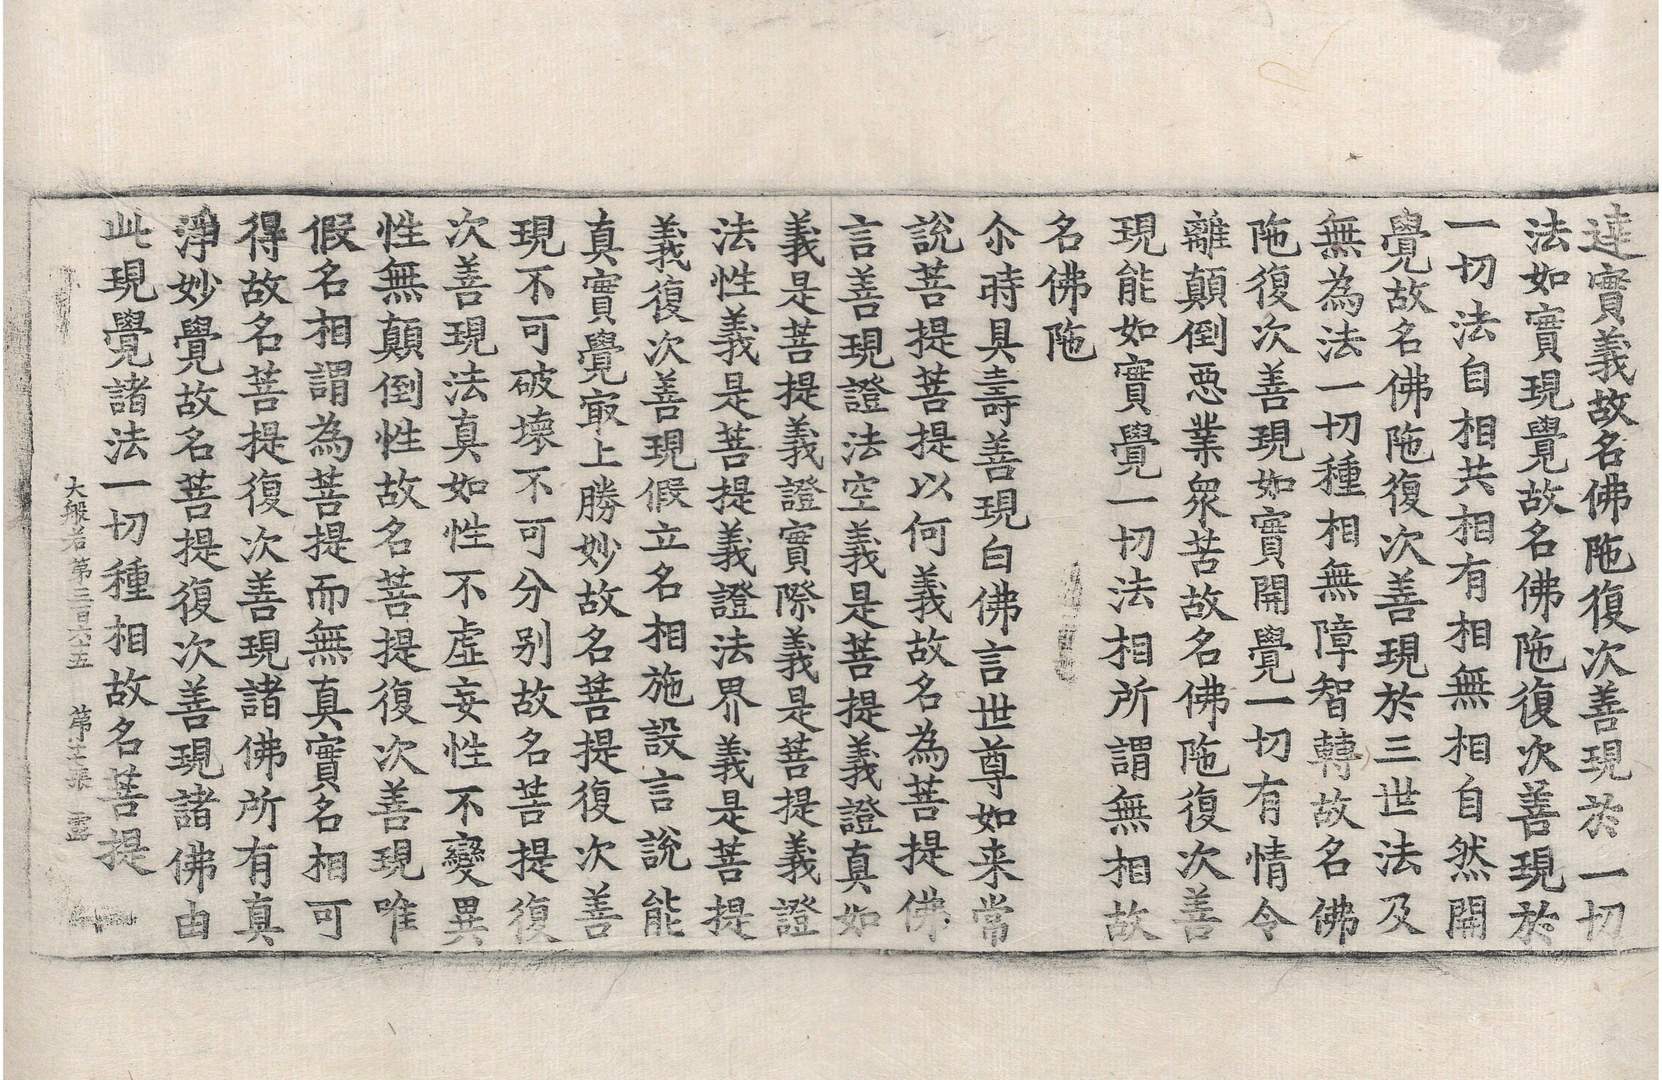 達實義故名佛陁復次善現於一切
法如實現覺故名佛陁復次善現於
一切法自相共相有相無相自然開
覺故名佛陁復次善現於三世法及
無為法一切種相無障智轉故名佛
陁復次善現如實開覺一切有情令
離顛倒惡業衆苦故名佛陁復次善
現能如實覺一切法相所謂無相故
名佛陁
尒時具壽善現白佛言世尊如来常
說菩提菩提以何義故名為菩提佛
言善現證法空義是菩提義證真如
義是菩提義證實際義是菩提義證
法性義是菩提義證法界義是菩提
義復次善現假立名相施設言說能
真實覺㝡上勝妙故名菩提復次善
現不可破壞不可分別故名菩提復
次善現法真如性不虛妄性不變異
性無顛倒性故名菩提復次善現唯
假名相謂為菩提而無真實名相可
得故名菩提復次善現諸佛所有真
淨妙覺故名菩提復次善現諸佛由
此現覺諸法一切種相故名菩提
大般若第三百六十五 第十二張 露